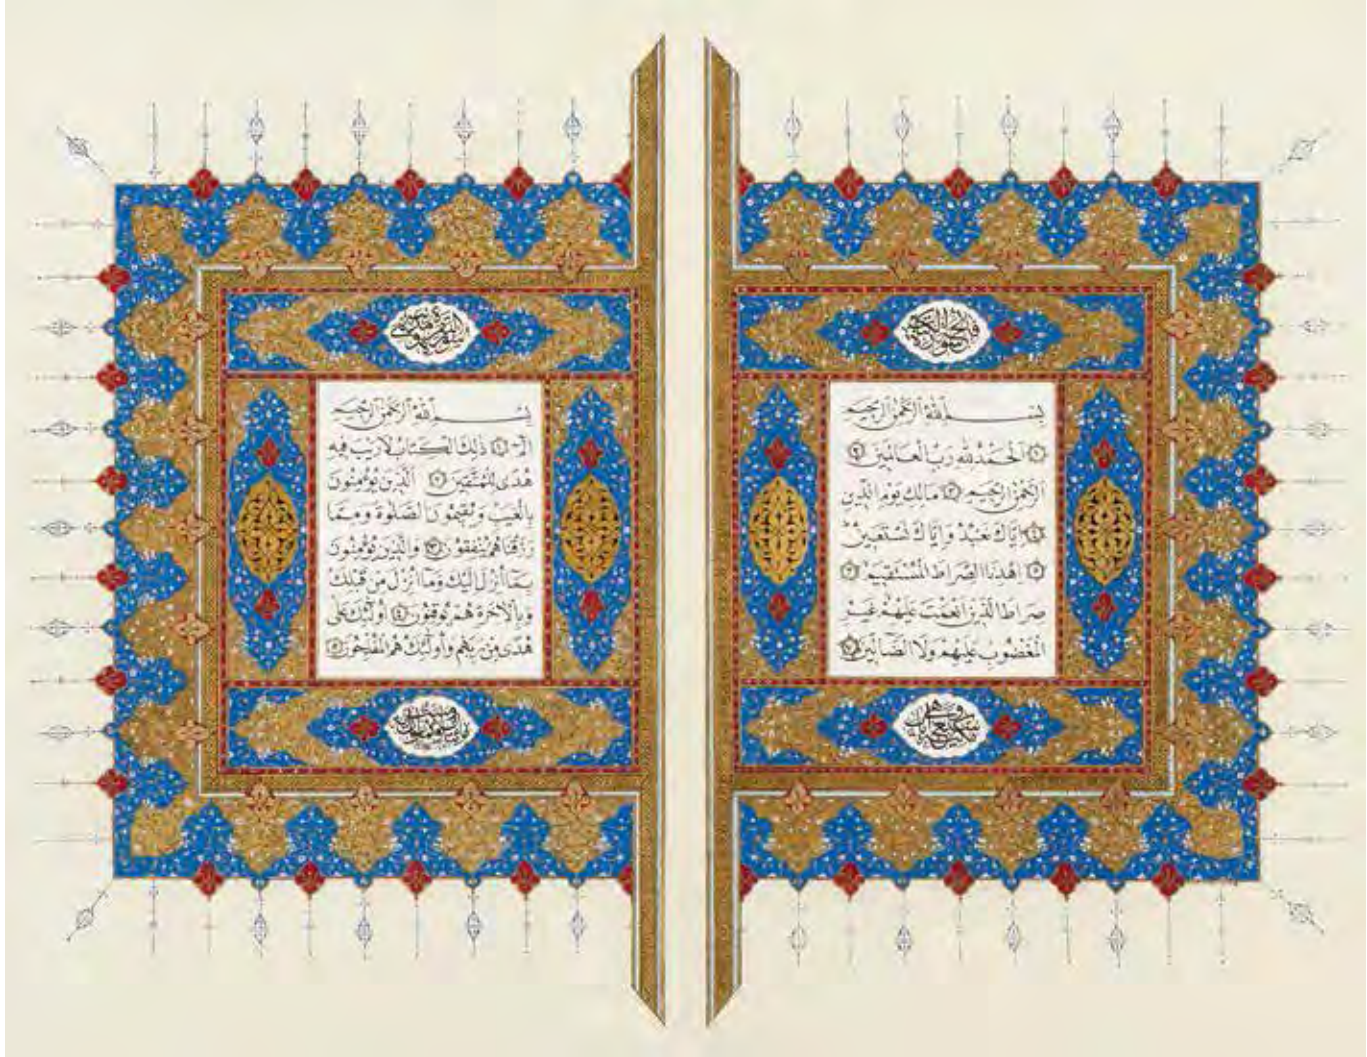 بِسْمِ اللهِ الرَّحْمٰنِ الرَّحِيمِ
﴿١﴾ اَلْحَمْدُ لِلّٰهِ رَبِّ الْعَالَمِينَ ﴿٢﴾
اَلرَّحْمٰنِ الرَّحِيمِ ﴿٣﴾ مَالِكِ يَوْمِ الدِّينِ
﴿٤﴾ اِيَّاكَ نَعْبُدُ وَاِيَّاكَ نَسْتَعِينُ
﴿٥﴾ اِهْدِنَا الصِّرَاطَ الْمُسْتَقِيمَ ﴿٦﴾
صِرَاطَ الَّذِينَ اَنْعَمْتَ عَلَيْهِمْ غَيْرِ
الْمَغْضُوبِ عَلَيْهِمْ وَلَا الضَّالِّينَ ﴿٧﴾
بِسْمِ اللهِ الرَّحْمٰنِ الرَّحِيمِ
الٓمٓ ﴿١﴾ ذٰلِكَ الْكِتَابُ لَا رَيْبَ فِيهِ
هُدًى لِلْمُتَّقِينَ ﴿٢﴾ اَلَّذِينَ يُؤْمِنُونَ
بِالْغَيْبِ وَيُقِيمُونَ الصَّلٰوةَ وَمِمَّا
رَزَقْنَاهُمْ يُنْفِقُونَ ﴿٣﴾ وَالَّذِينَ يُؤْمِنُونَ
بِمَٓا اُنْزِلَ اِلَيْكَ وَمَٓا اُنْزِلَ مِنْ قَبْلِكَ
وَبِالْاٰخِرَةِ هُمْ يُوقِنُونَ ﴿٤﴾ اُولٰٓئِكَ عَلٰى
هُدًى مِنْ رَبِّهِمْ وَاُولٰٓئِكَ هُمُ الْمُفْلِحُونَ ﴿٥﴾